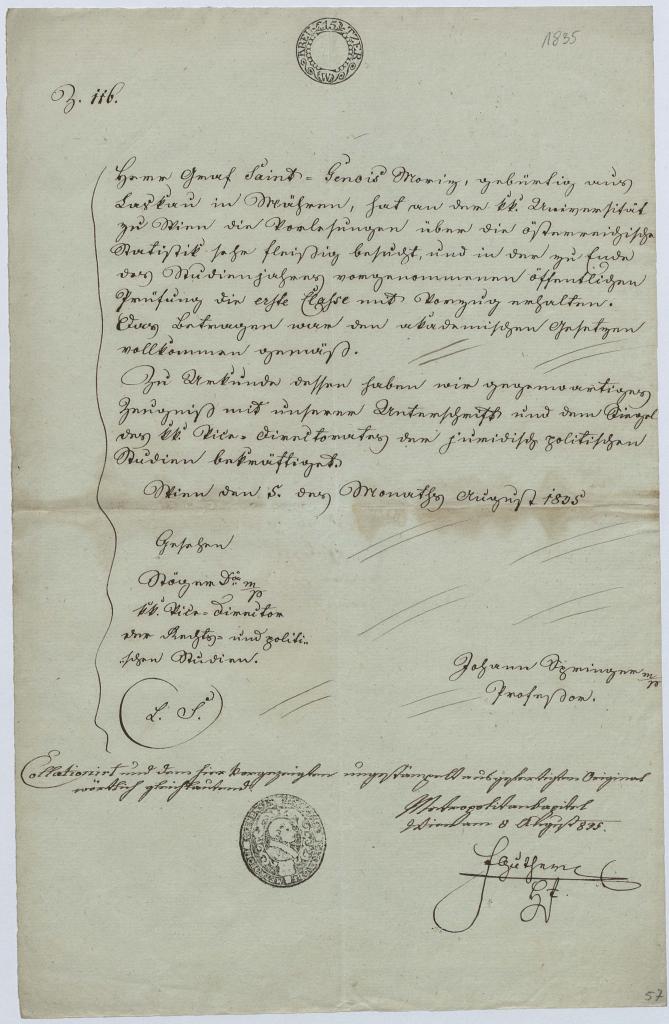 1835
15
Z. 116.
Herr Graf Saint-Genois Moriz, gebürtig aus
Laskau in Mähren, hat an der kk. Universität
zu Wien die Vorlesungen über die österreichische
Statistik sehr fleißig besucht, und in der zu Ende
des Studienjahres vorgenommenen öffentlichen
Prüfung die erste Classe mit Vorzug erhalten.
Das Betragen war den akademischen Gesetzen
vollkommen gemäß.
Zu Urkunde dessen haben wir gegenwärtiges
Zeugniß mit unserer Unterschrift und dem Siegel
des kk. Vice-Directorates der juridisch politischen
Studien bekräftiget.
Wien den 5. des Monaths August 1835
Gesehen
Stöger Dor m/p
kk. Vice-Director
der Rechts- und politi-
schen Studien.
Johann Springer m/p
Professor.
L. S.
Collationirt und dem hier vorgezeigten ungestämpelt ausgefertigten Original
wörtlich gleichlautend
Metropolitankapitel
Wien am 8 August 835.
57